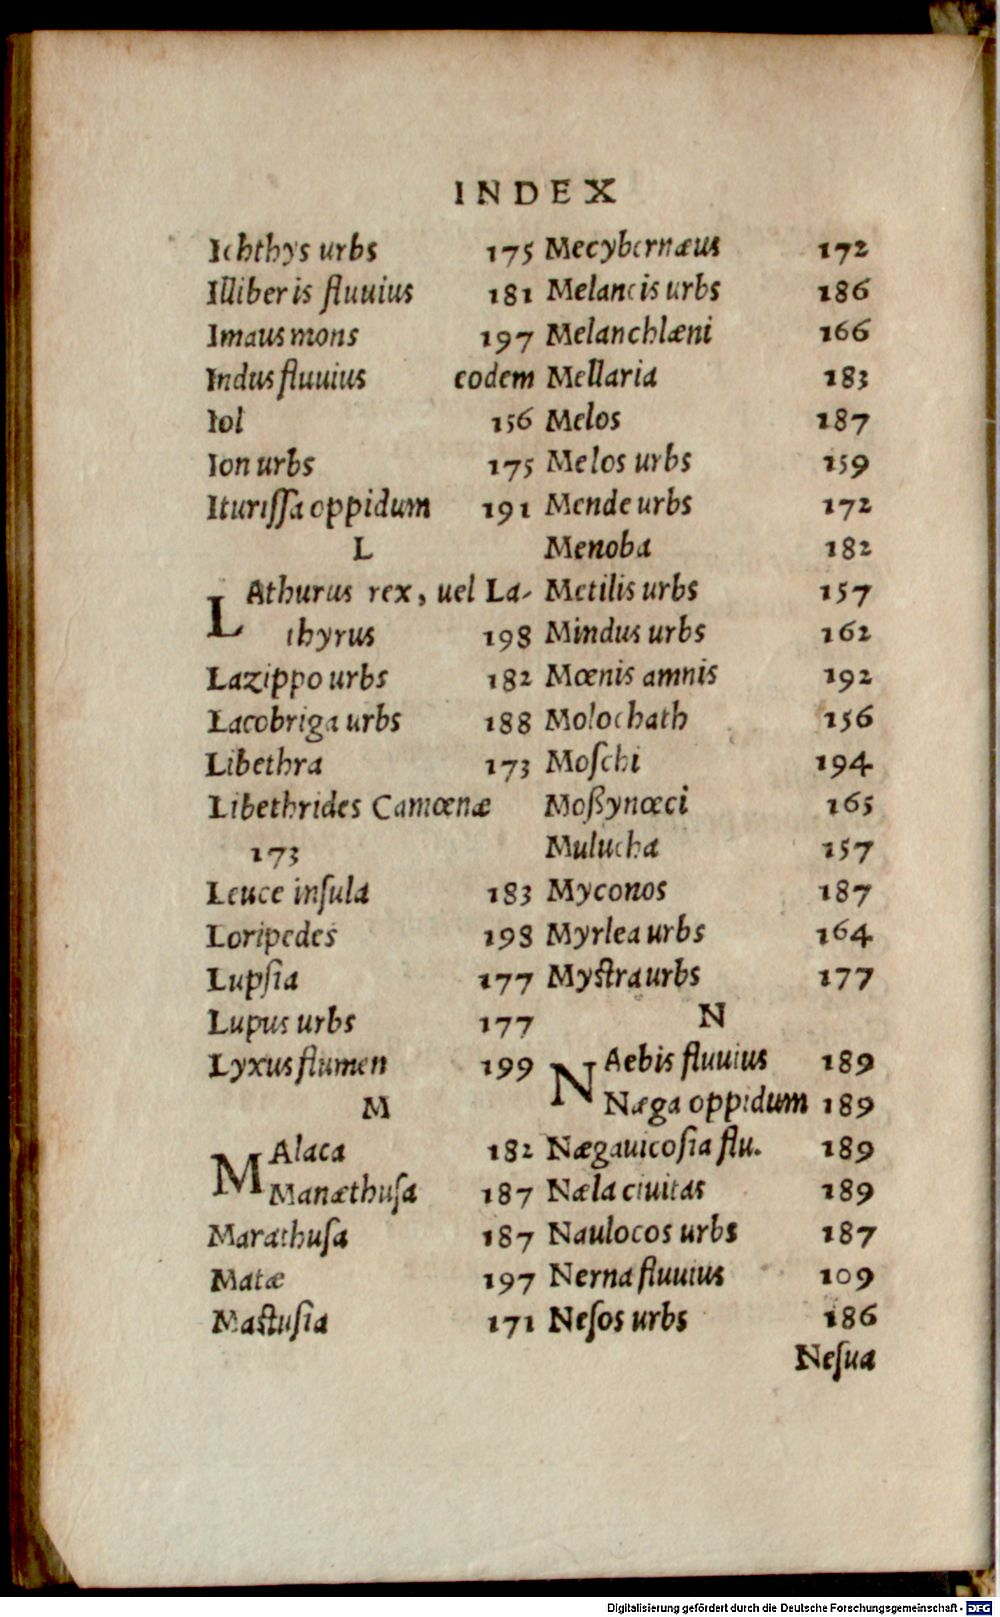 INDEX
Ichthys urbs 175
Illiberis fluuius 181
Imaus mons 197
Indus fluuius eodem
Iol 156
Ion urbs 175
Iturissa oppidum 191
L
LAthurus rex, uel La-
thyrus 198
Lazippo urbs 182
Lacobriga urbs 188
Libethra 173
Libethrides Camœnæ
173
Leuce insula 183
Loripedes 198
Lupsia 177
Lupus urbs 177
Lyxus flumen 199
M
MAlaca 182
Manæthusa 187
Marathusa 187
Matæ 197
Mastusia 171
Mecybernæus 172
Melancis urbs 186
Melanchlæni 166
Mellaria 183
Melos 187
Melos urbs 159
Mende urbs 172
Menoba 182
Metilis urbs 157
Mindus urbs 162
Mœnis amnis 192
Molochath 156
Moschi 194
Moßynœci 165
Mulucha 157
Myconos 187
Myrlea urbs 164
Mystra urbs 177
N
NAebis fluuius 189
Næga oppidum 189
Nægauicosia flu. 189
Næla ciuitas 189
Naulocos urbs 187
Nerna fluuius 109
Nesos urbs 186
Nesua
Digitalisierung gefördert durch die Deutsche Forschungsgemeinschaft - DFG